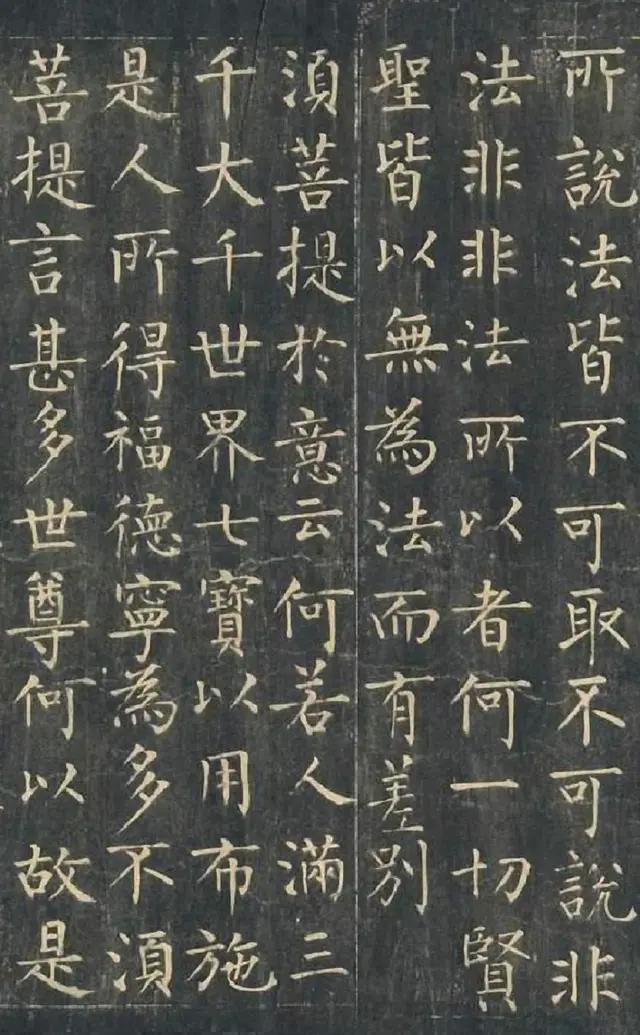 所說法皆不可取不可說非
法非非法所以者何一切賢
聖皆以無為法而有差別
須菩提於意云何若人滿三
千大千世界七寶以用布施
是人所得福德寧為多不須
菩提言甚多世尊何以故是